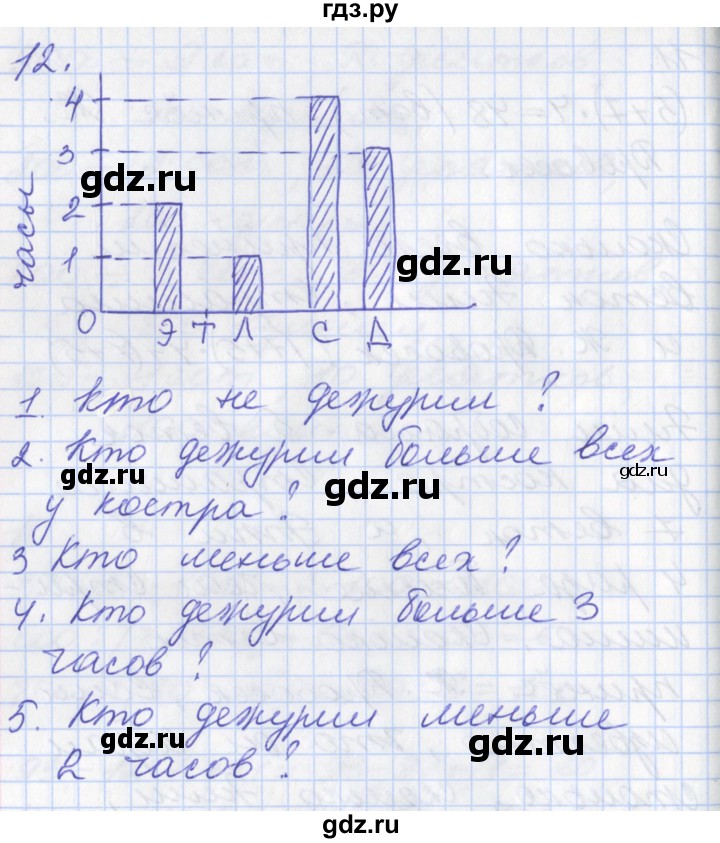 гдз.ру
12.
часы
4
3
gdz.ru
2
gdz.ru
1
0 Э Т Л С Д
1. Кто не дежурил?
2. Кто дежурил больше всех
gdz.ru gdz.ru gdz.ru
у костра?
3 Кто меньше всех?
4. Кто дежурил больше 3
часов?
5. Кто дежурил меньше
gdz.ru gdz.ru
2 часов?
gdz.ru